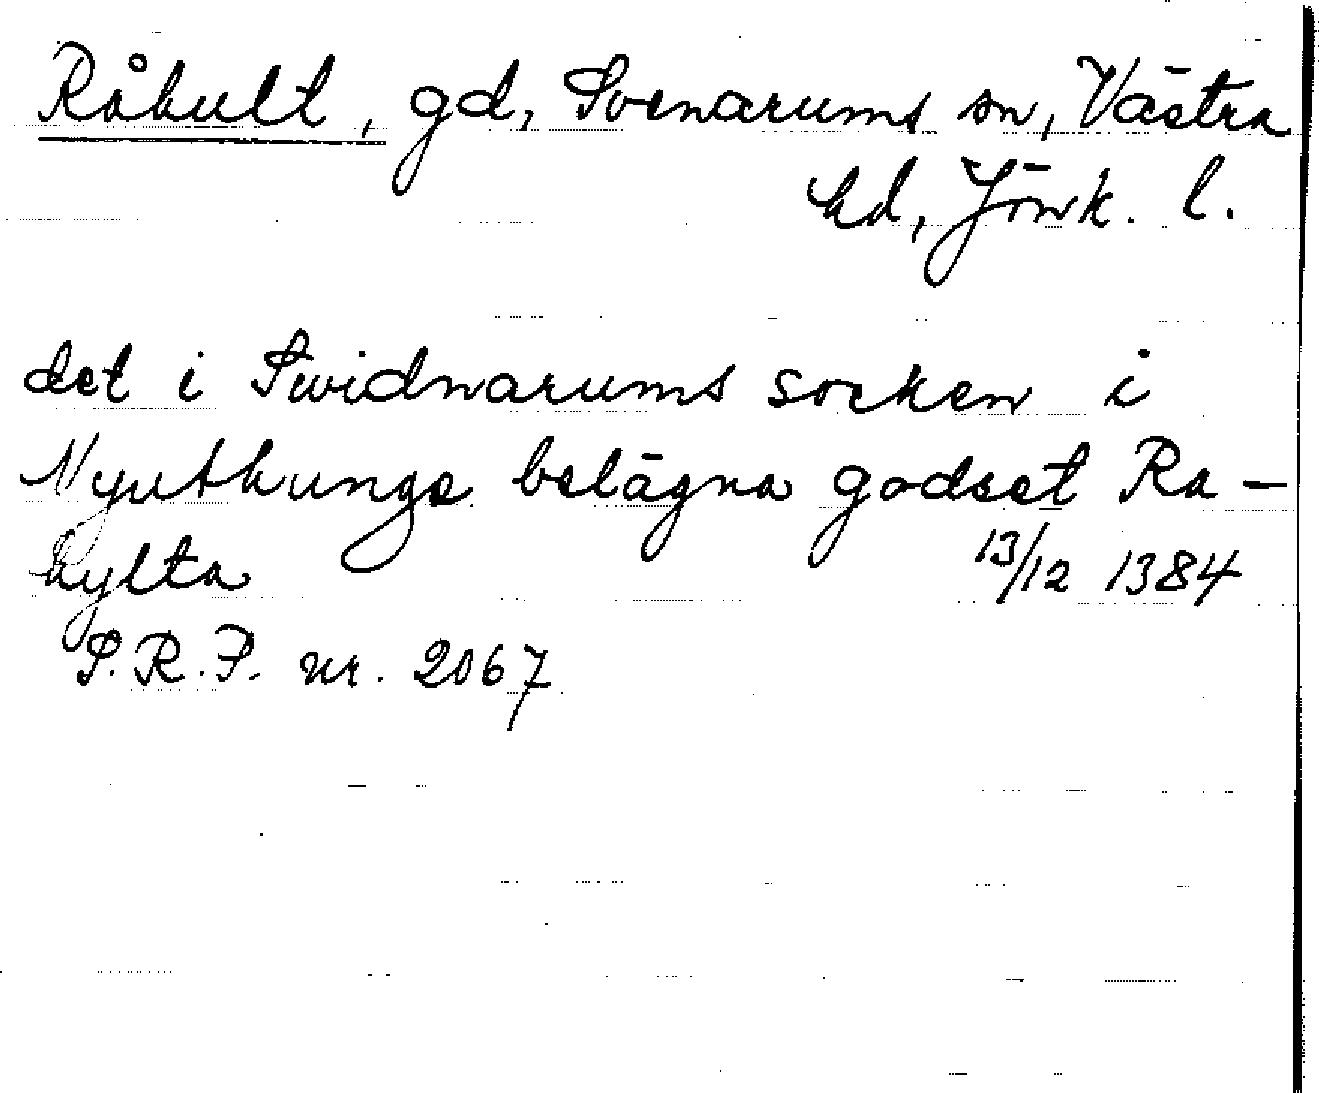 Råhult, gd, Svenarums sn, Västra
hd, Jönk. l.
det i Swidnarums socken i
Nyuthunge belägna godset Ra-
hylta 13/12 1384
S.R.P. nr. 2067